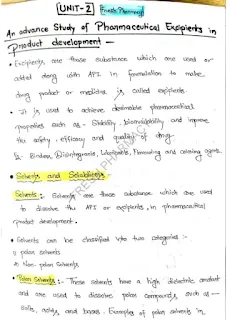 UNIT-2
An advance Study of Pharmaceutical Excipients in
Product development -
• Excipients are those substance which are used or
added along with API in formulation to make
drug product or medicine is called excipients.
• It is used to achieve desirable pharmaceutical
properties such as - Stability, bioavailability and improve
the safety, efficacy and quality of drug
Binders, Disintegrants, Lubricants, Flavouring and coloring agents.
• Solvents and Solubilizers -
Solvents : Solvents are those substance which are used
to dissolve the API or excipients in pharmaceutical
product development.
• Solvents can be classified into two categories :-
Polar solvents
Non-polar solvents
• Polar Solvents :- These solvents have a high dielectric constant
and are used to dissolve polar compounds, such as -
salts, acids, and bases. Examples of polar solvents is